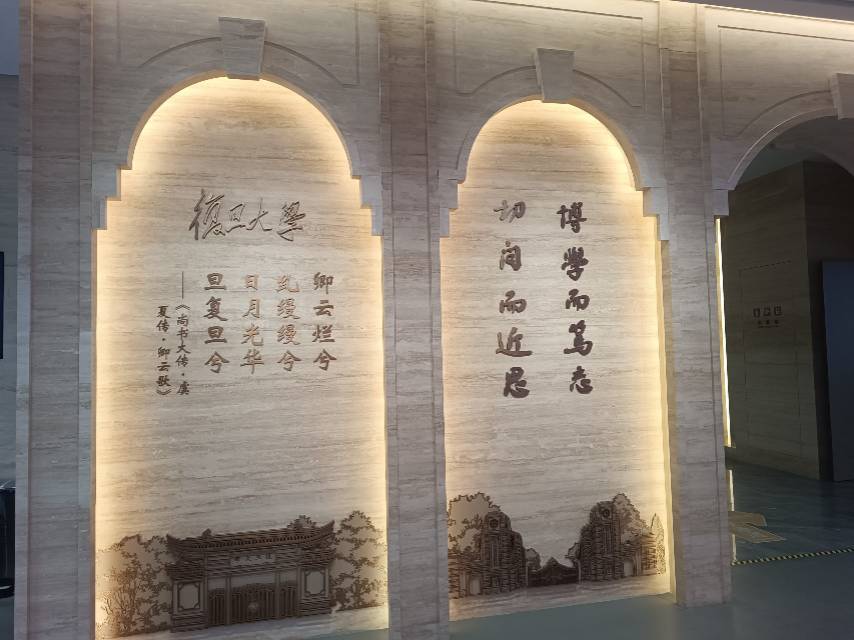 復旦大學
卿云烂兮
糺缦缦兮
日月光华
旦复旦兮
——《尚书大传·虞
夏传·卿云歌》
博學而篤志
切问而近思